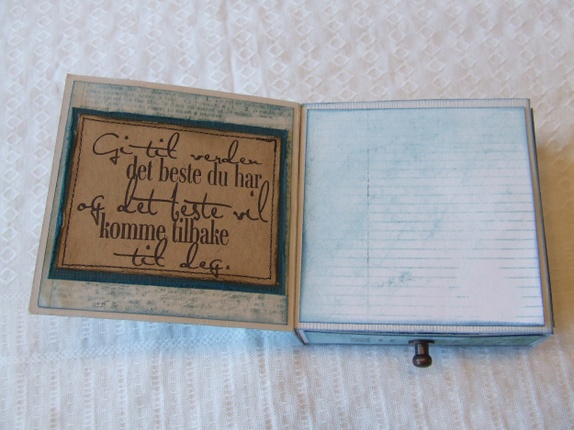 Gi til verden
det beste du har
og det beste vil
komme tilbake
til deg.